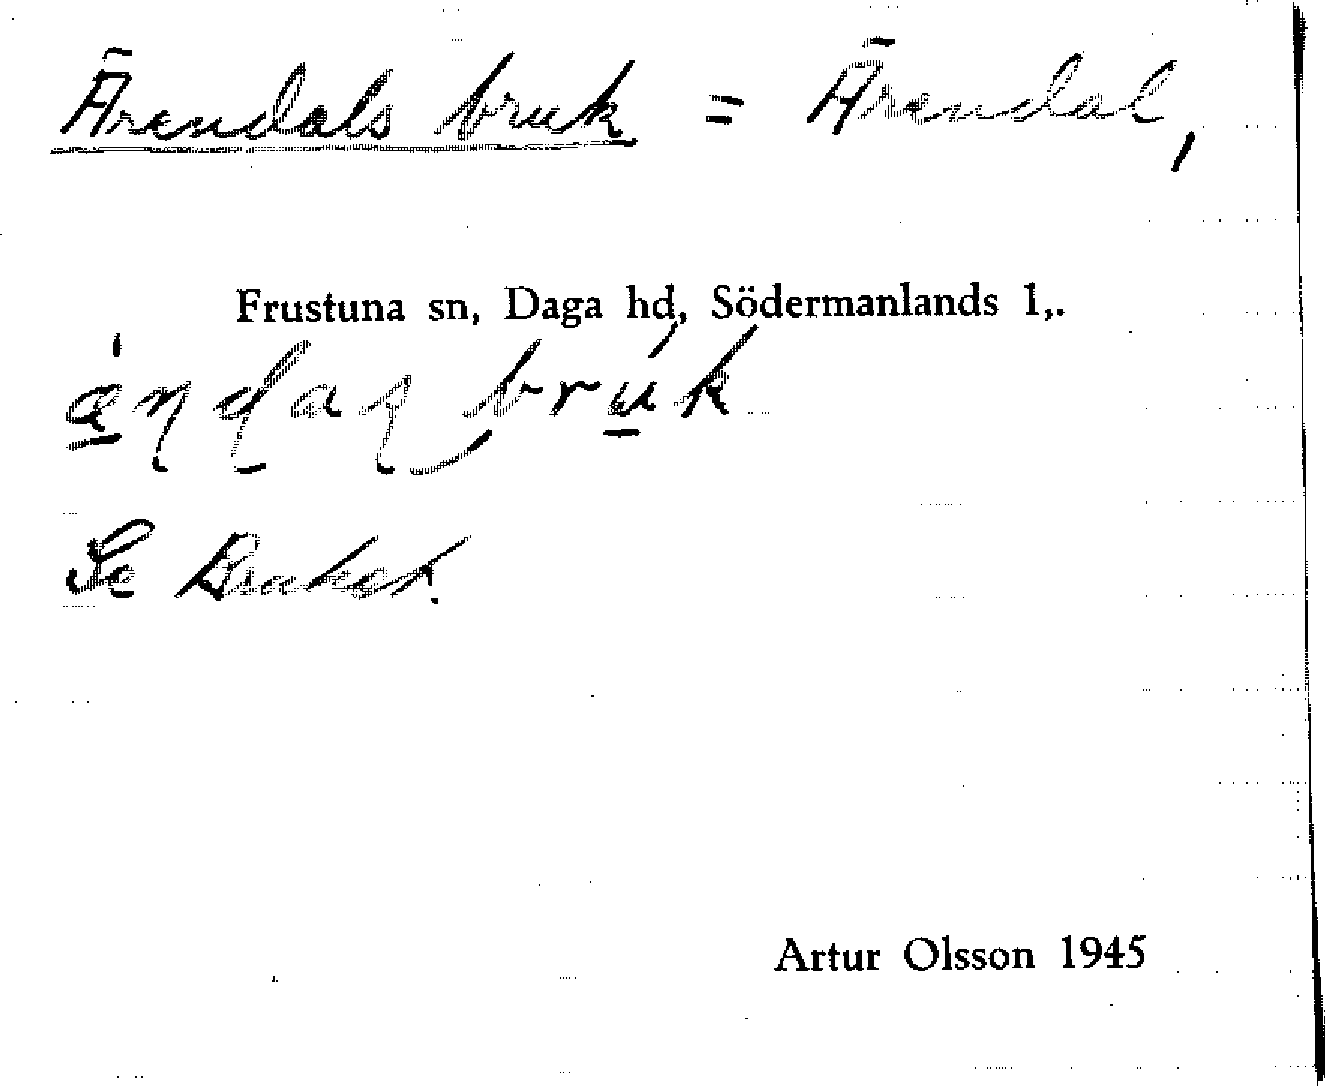 Ärendals bruk = Ärendal,
Frustuna sn, Daga hd, Södermanlands l,.
Se Bruket.
Artur Olsson 1945